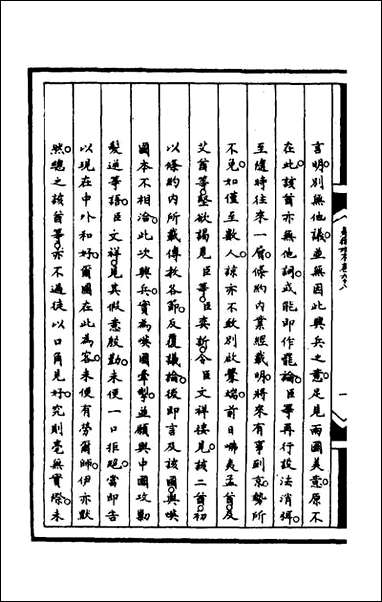 言明。別無他議並無因此興兵之意足見兩國美意原不
在此。該酋亦無他詞或能即作罷論。臣等再行設法消弭。
至隨時往來一層。條約內業經載明。將來有事到京。勢所
不免。如僅至數人。諒亦不致別啟釁端。前日咈夷孟酋。及
艾酋等。堅欲謁見臣等。臣奕訢。令臣文祥接見該二酋。初
以條約內所載傳教各節。反覆議論。後即言及該國。與咉
國本不相洽。此次興兵。實為咉國牽掣。並願與中國攻勦
髮逆等語。臣文祥。見其假意殷勤。未便一口拒絕。當即告
以現在中外和好。爾國在此為客。未便有勞爾師。伊亦默
然。總之該酋等。亦不過徒以口角見好。究則毫無實際。未